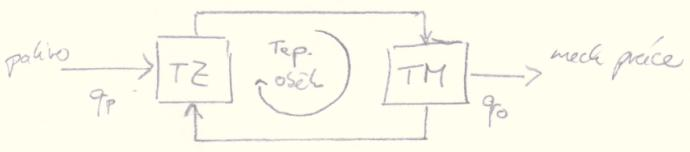 palivo
qp
TZ
Tep.
oběh
TM
mech práce
qo